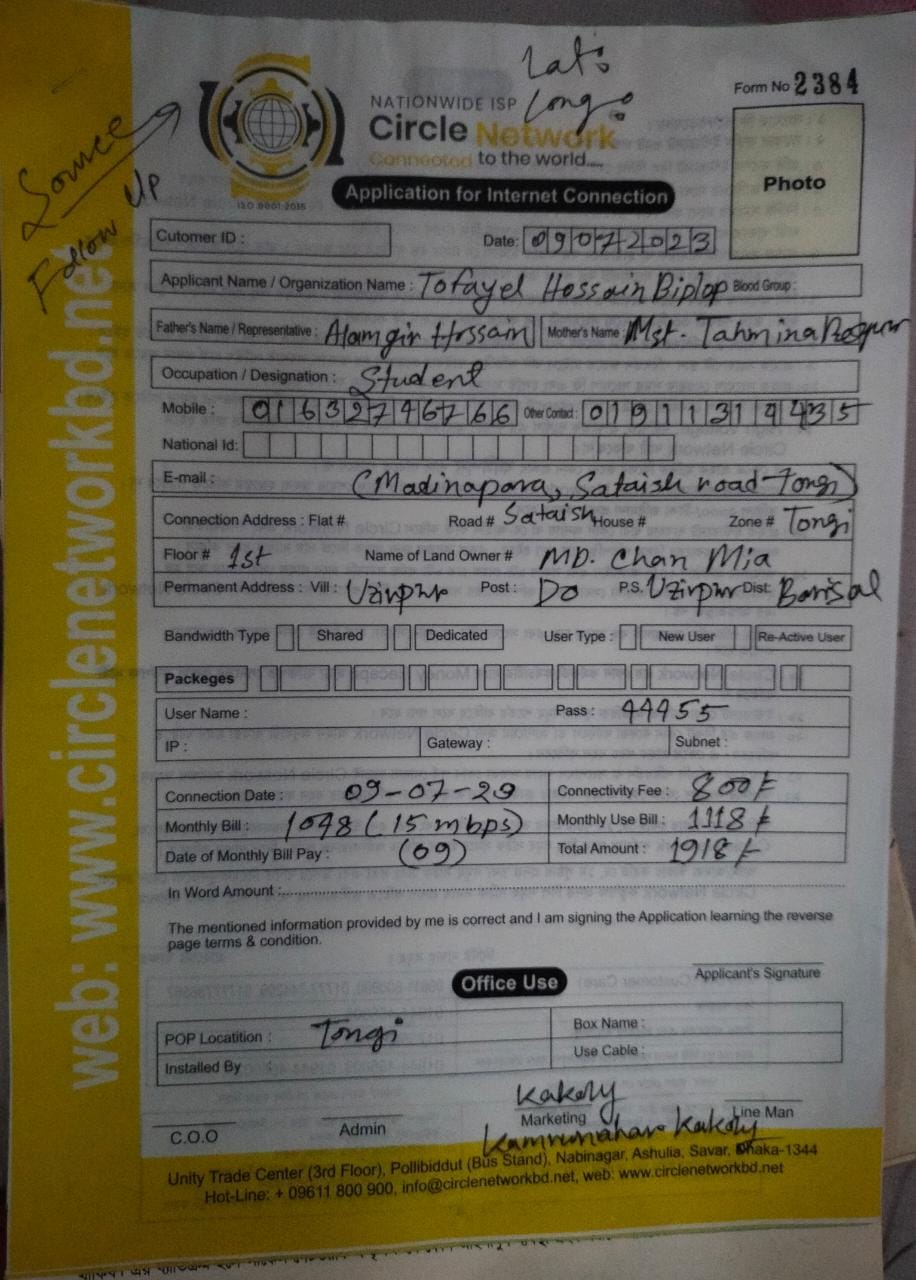 Lat:
Long:
Form No 2384
Source
Follow UP
NATIONWIDE ISP
Circle Network
Connected to the world....
ISO 9001:2015
Application for Internet Connection
Photo
Cutomer ID :
Date: 09072023
Applicant Name / Organization Name : Tofayel Hossain Biplop Blood Group :
Father's Name / Representative : Alamgir Hossain Mother's Name : Mst. Tahmina Begum
Occupation / Designation : Student
Mobile : 01632746766 Other Contact : 01911319435
National Id:
E-mail : (Madinapara, Sataish road-Tongi)
Connection Address : Flat # Road # Sataish House # Zone # Tongi
Floor # 1st Name of Land Owner # MD. Chan Mia
Permanent Address : Vill : Uzirpur Post : Do P.S. Uzirpur Dist: Barisal
Bandwidth Type Shared Dedicated User Type : New User Re-Active User
Packeges
User Name : Pass : 44455
IP : Gateway : Subnet :
Connection Date : 09-07-23 Connectivity Fee : 800/-
Monthly Bill : 1048 (15 mbps) Monthly Use Bill : 1118/-
Date of Monthly Bill Pay : (09) Total Amount : 1918/-
In Word Amount :
The mentioned information provided by me is correct and I am signing the Application learning the reverse
page terms & condition.
Applicant's Signature
Office Use
POP Locatition : Tongi Box Name :
Installed By : Use Cable :
Kakoly
C.O.O Admin Marketing Line Man
Kamrunahar Kakoly
Unity Trade Center (3rd Floor), Pollibiddut (Bus Stand), Nabinagar, Ashulia, Savar, Dhaka-1344
Hot-Line: + 09611 800 900, info@circlenetworkbd.net, web: www.circlenetworkbd.net
web: www.circlenetworkbd.net